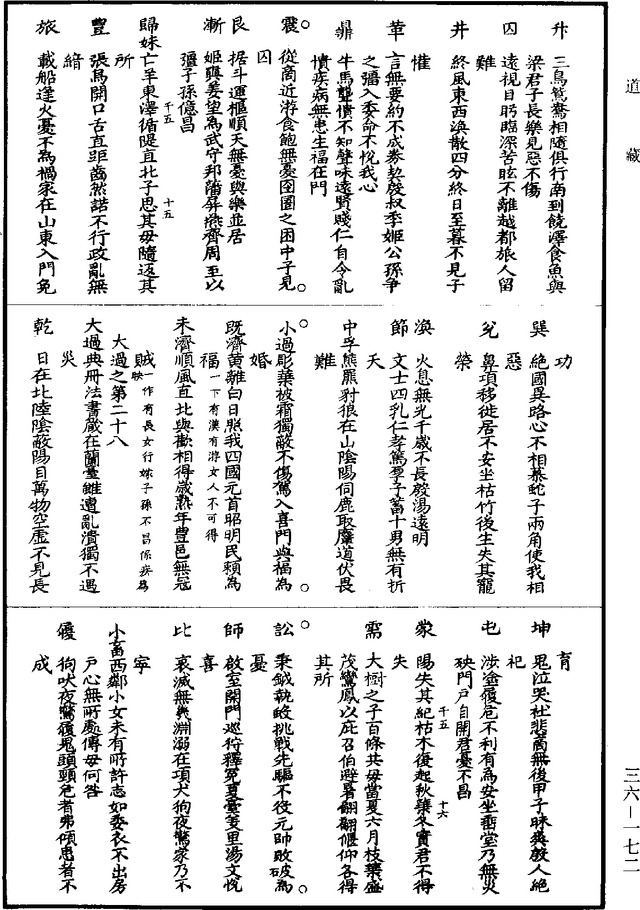 道藏
升 三鳥鴛鴦相隨俱行南到饒澤食魚與
梁君子長樂見惡不傷
囚 遠視目盻臨深苦眩不離越都旅人留
難
井 終風東西渙散四分終日至暮不見子
懽
革 言無要約不成券契殷叔季姬公孫爭
之彊入委命不悅我心
鼎 牛馬聾憒不知聲味遠賢賤仁自令亂
憒疾病無患生福在門
震 從商近游食飽無憂囹圄之困中子見
囚
艮 据斗運樞順天無憂與樂並居
漸 姬奭姜望為武守邦藩屏燕齊周室以
彊子孫億昌
歸妹 亡羊東澤循隄直北子思其母隨返其
千五 十五
所
豐 張鳥開口舌直距齒然諾不行政亂無
緒
旅 載船逢火憂不為禍家在山東入門免
功
巽 絕國異路心不相慕蛇子兩角使我相
惡
兌 鼻項移徙居不安坐枯竹後生失其寵
榮
渙 火息無光千歲不長殷湯遠明
節 文士四乳仁孝篤厚子蓄十男無有折
夭
中孚 熊羆豺狼在山陰陽伺鹿取麞道伏畏
難
小過 彫葉被霜獨蔽不傷駕入喜門與福為
婚
既濟 黃離白日照我四國元首昭明民賴為
福 一下有漢有游女人不可得
未濟 順風直北與歡相得歲熟年豐邑無冦
賊 一作有長女行嫁子孫不昌係疾為
殃
大過之第二十八
大過 典冊法書藏在蘭臺雖遭亂潰獨不遇
災
乾 日在北陸陰蔽陽目萬物空虛不見長
育
坤 鬼泣哭社悲商無後甲子昧爽殷人絕
祀
屯 涉塗履危不利有為安坐垂堂乃無災
殃門戶自開君憂不昌
蒙 陽失其紀枯木復起秋葉冬實君不得
千五 十六
失
需 大樹之子百條共母當夏六月枝葉盛
茂鸞鳳以庇召伯避暑翩翩偃仰各得
其所
訟 秉鉞執殳挑戰先驅不役元帥敗破為
石
憂
師 啟室開門巡狩釋冤夏臺羑里湯文悅
喜
比 衰滅無幾淵溺在項犬狗夜驚家乃不
寧
小畜 西鄰小女未有所許志如委衣不出房
戶心無所處傳母何咎
履 狗吠夜驚履鬼頭頸危者弗傾患者不
成
三六—一七二